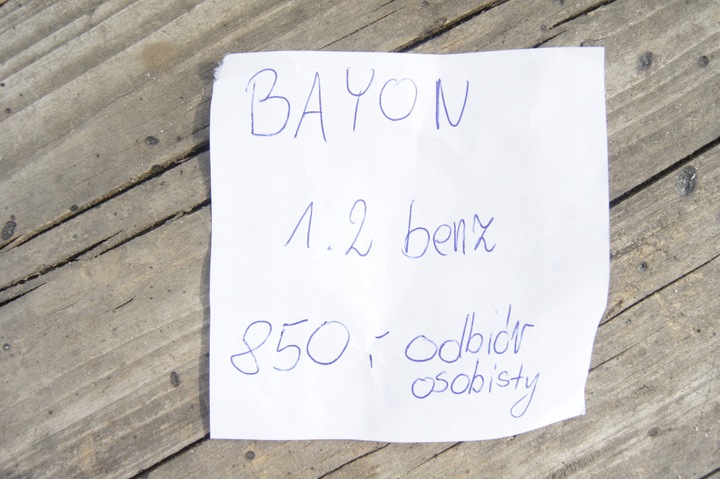 BAYON
1.2 benz
850,- odbiór
osobisty